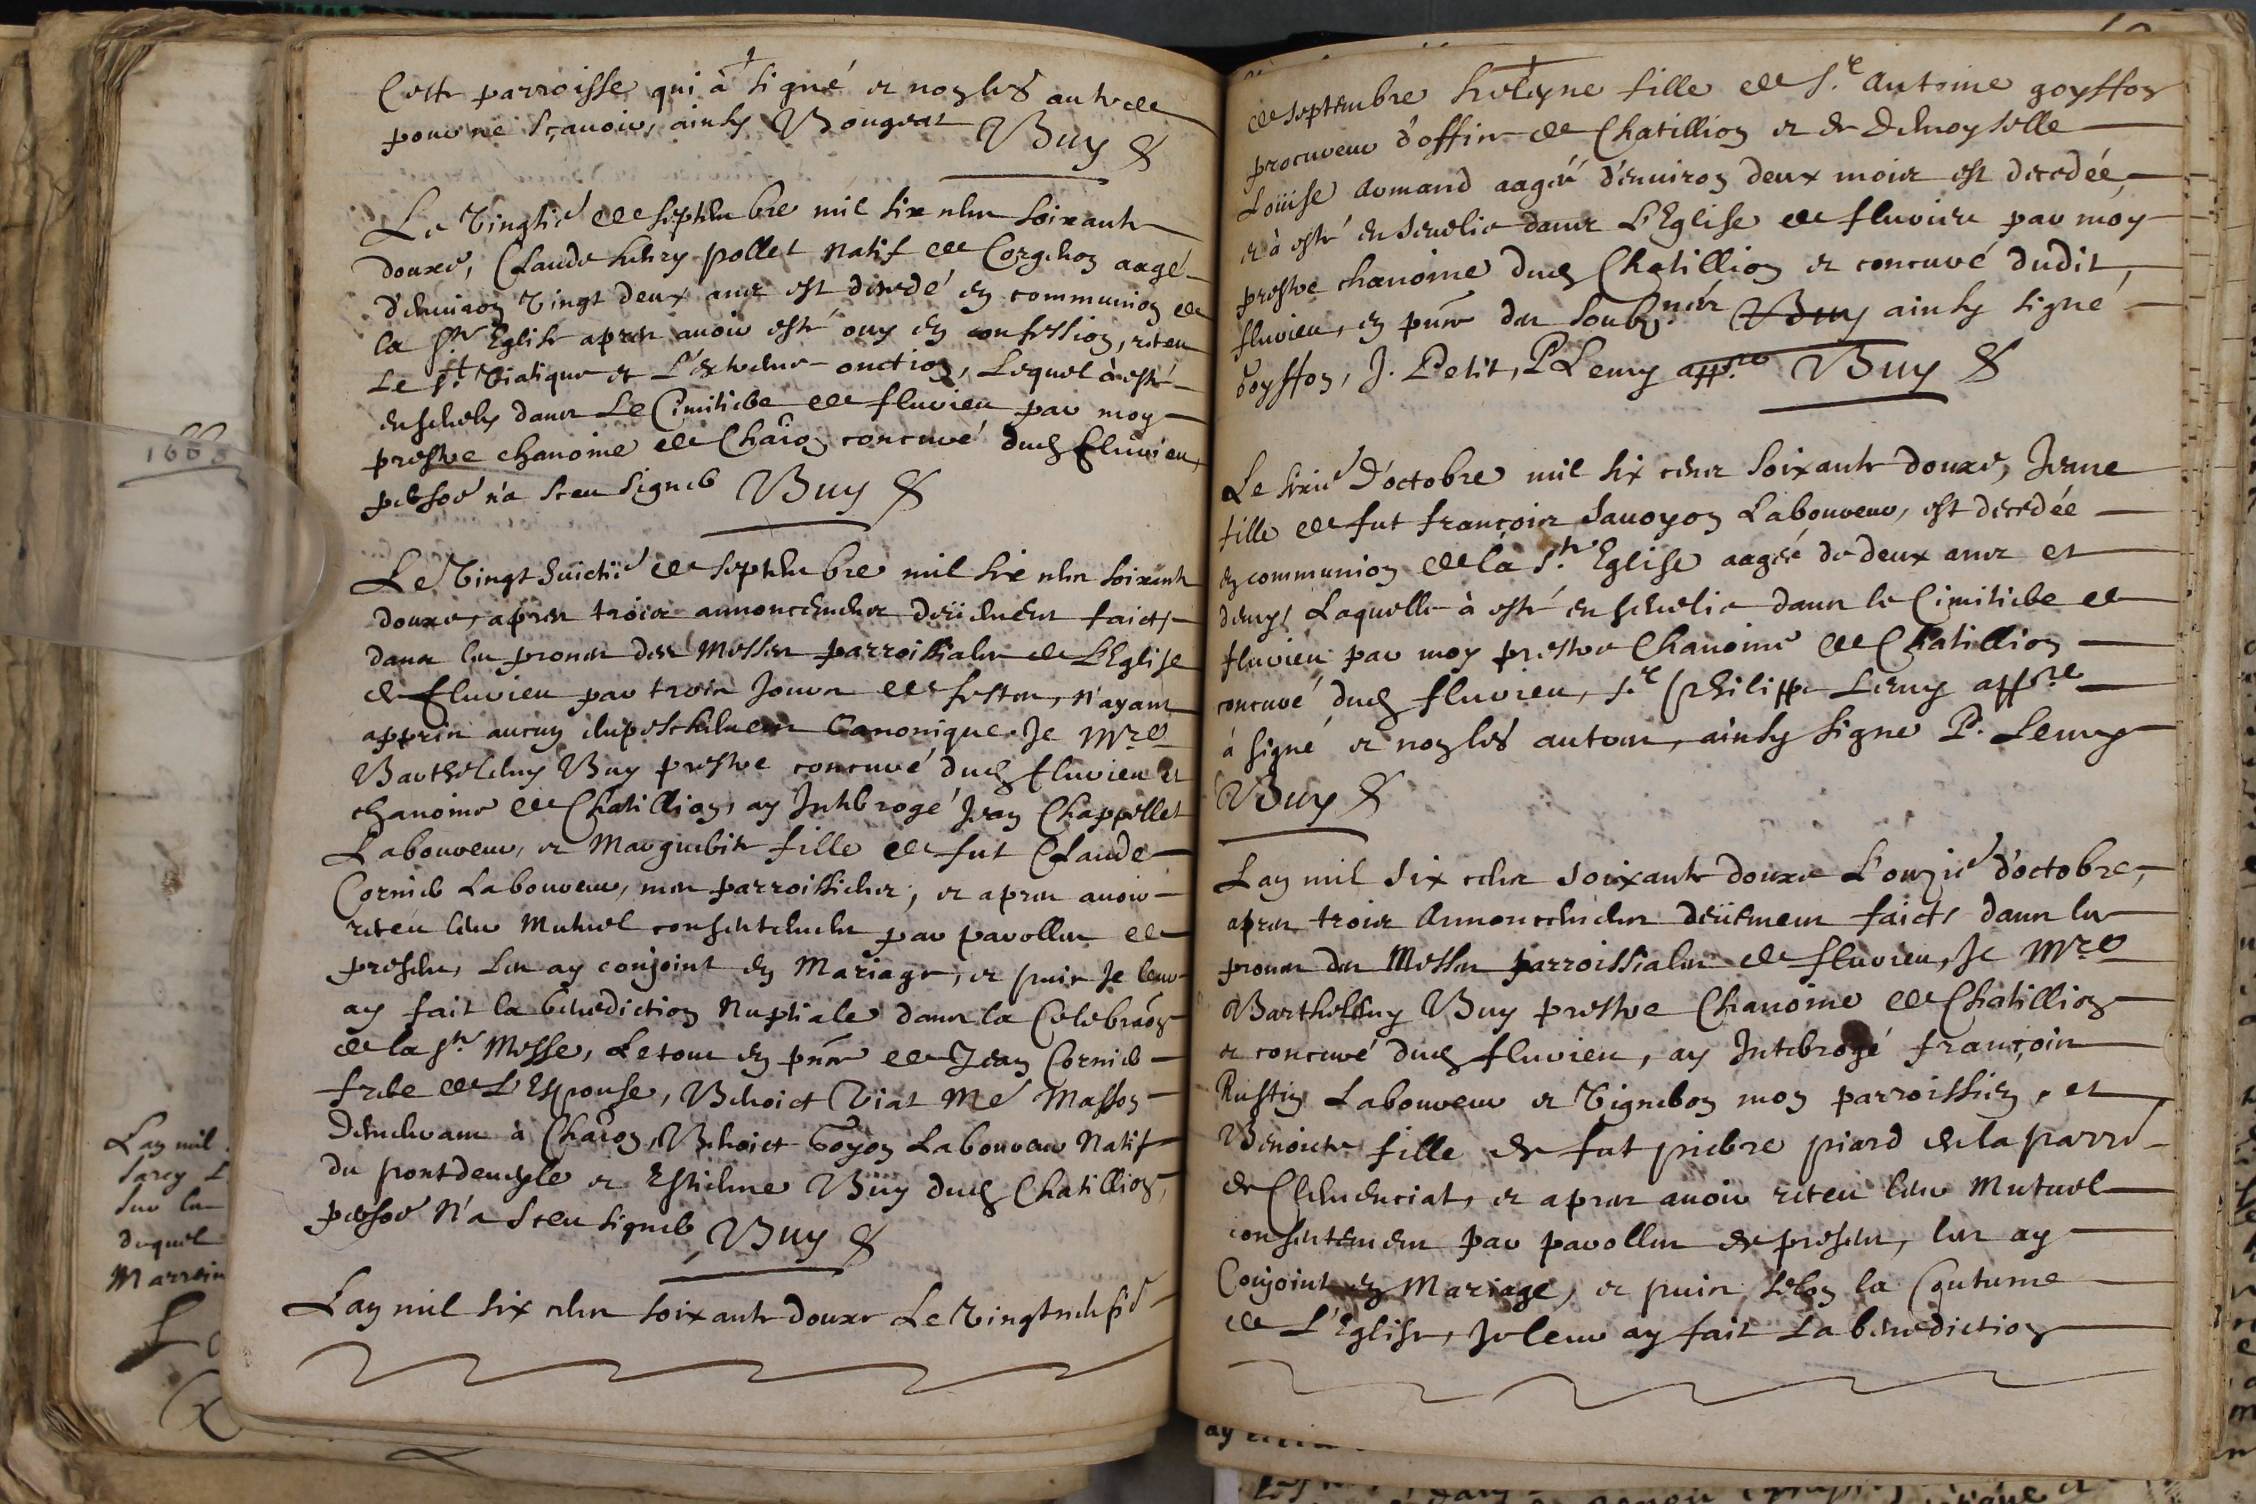 Ceste parroisse qui à signé et non les autres
pour ne sçauoir, ainsy Bougeat Buy &
Le Vingtie de septembre mil six cens soixante
douxe, Claude henry pollet natif de Corgenon aagé
d'enuiron Vingt deux ans est decedé en communion de
la ste Eglise apres auoir esté ouy en confession, receu
Le st. Viatique et L'extreme onction, Lequel à esté
enseuely dans Le Cimitiere de fluvieu par moy
prestre chanoine de Chaôn concuré dud fluvieu,
perso͞e n'a sceu signer Buy &
Le Vingt huictie de septembre mil six cens soixante
douxe, apres trois annoncemens deüement faicts
dans les prones des Messes parroissiales de L'Eglise
de fluvieu par trois Jours de festes, n'ayant
appris aucun empeschement Canonique. Je Mre
Barthelemy Buy prestre concuré dud fluvieu et
chanoine de Chatillion, ay Interrogé Jean Chappellet
Laboureur, et Marguerite fille de fut Claude
Cornier Laboureur, mes parroissiens, et apres auoir
receu leur Mutuel consentement par parolles de
presens, Les ay conjoint en Mariage, et puis Je leur
ay fait la benediction Nuptiale dans la Celebraôn
de la ste Messe, Le tout en pnce de Jean Cornier
frere de L'Espouse, Benoict Viat Me Masson
demeurant à Chaôn, Benoict Goyon Laboureur Natif
du pontdeuesle et Estienne Buy dud Chatillion,
perso͞e N'a sceu signer Buy &
Lan mil six cens soixante douxe Le Vingtnesfie
de septembre heleyne fille de sr. Antoine goyffon
procureur d'office de Chatillion et de Demoyselle
Loüise Armand aagée d'enuiron deux mois est decedée,
et à esté enseuelie dans L'Eglise de fluvieu par moy
prestre chanoine dud Chatillion et concuré dudit
fluvieu, en pnce des soubznés Buy ainsy signé
Goyffon, J. Petit, P Leury appre Buy &
Le sixie D'octobre mil six cens soixante douxe, Jeane
fille de fut françois Sauoyon Laboureur, est decedée
en communion de la ste Eglise aagée de deux ans et
demys Laquelle à esté enseuelie dans le Cimitiere de
fluvieu par moy prestre Chanoine de Chatillion
concuré dud fluvieu, sr Philippe Leury appre
à signé et non les autres, ainsy signe P. Leury
Buy &
Lan mil six cens soixante douxe L'onzie d'octobre,
apres trois Annoncemens deüement faicts dans les
prones des Messes parroissiales de fluvieu, Je Mre
Barthelemy Buy prestre Chanoine de Chatillion
et concuré dud fluvieu, ay Interrogé françois
Rustin Laboureur et Vigneron mon parroissien, et
Benoicte fille de fut pierre piard de la parre
de Clemenciat, et apres auoir receu leur Mutuel
consentement par parolles de presens, les ay
Conjoint en Mariage, et puis selon la Coutume
de L'Eglise, Je leur ay fait La benediction
1668
Lan mil
sur la
duquel
Marrein